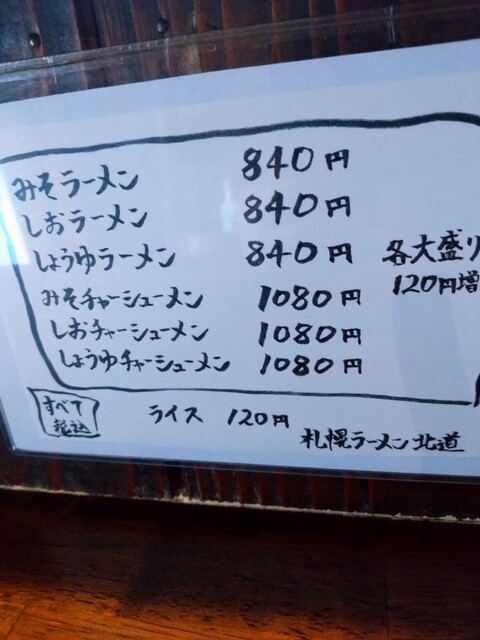 みそラーメン 840円
しおラーメン 840円
しょうゆラーメン 840円
各大盛り
120円増
みそチャーシューメン 1080円
しおチャーシューメン 1080円
しょうゆチャーシューメン 1080円
すべて
税込
ライス 120円
札幌ラーメン 北道